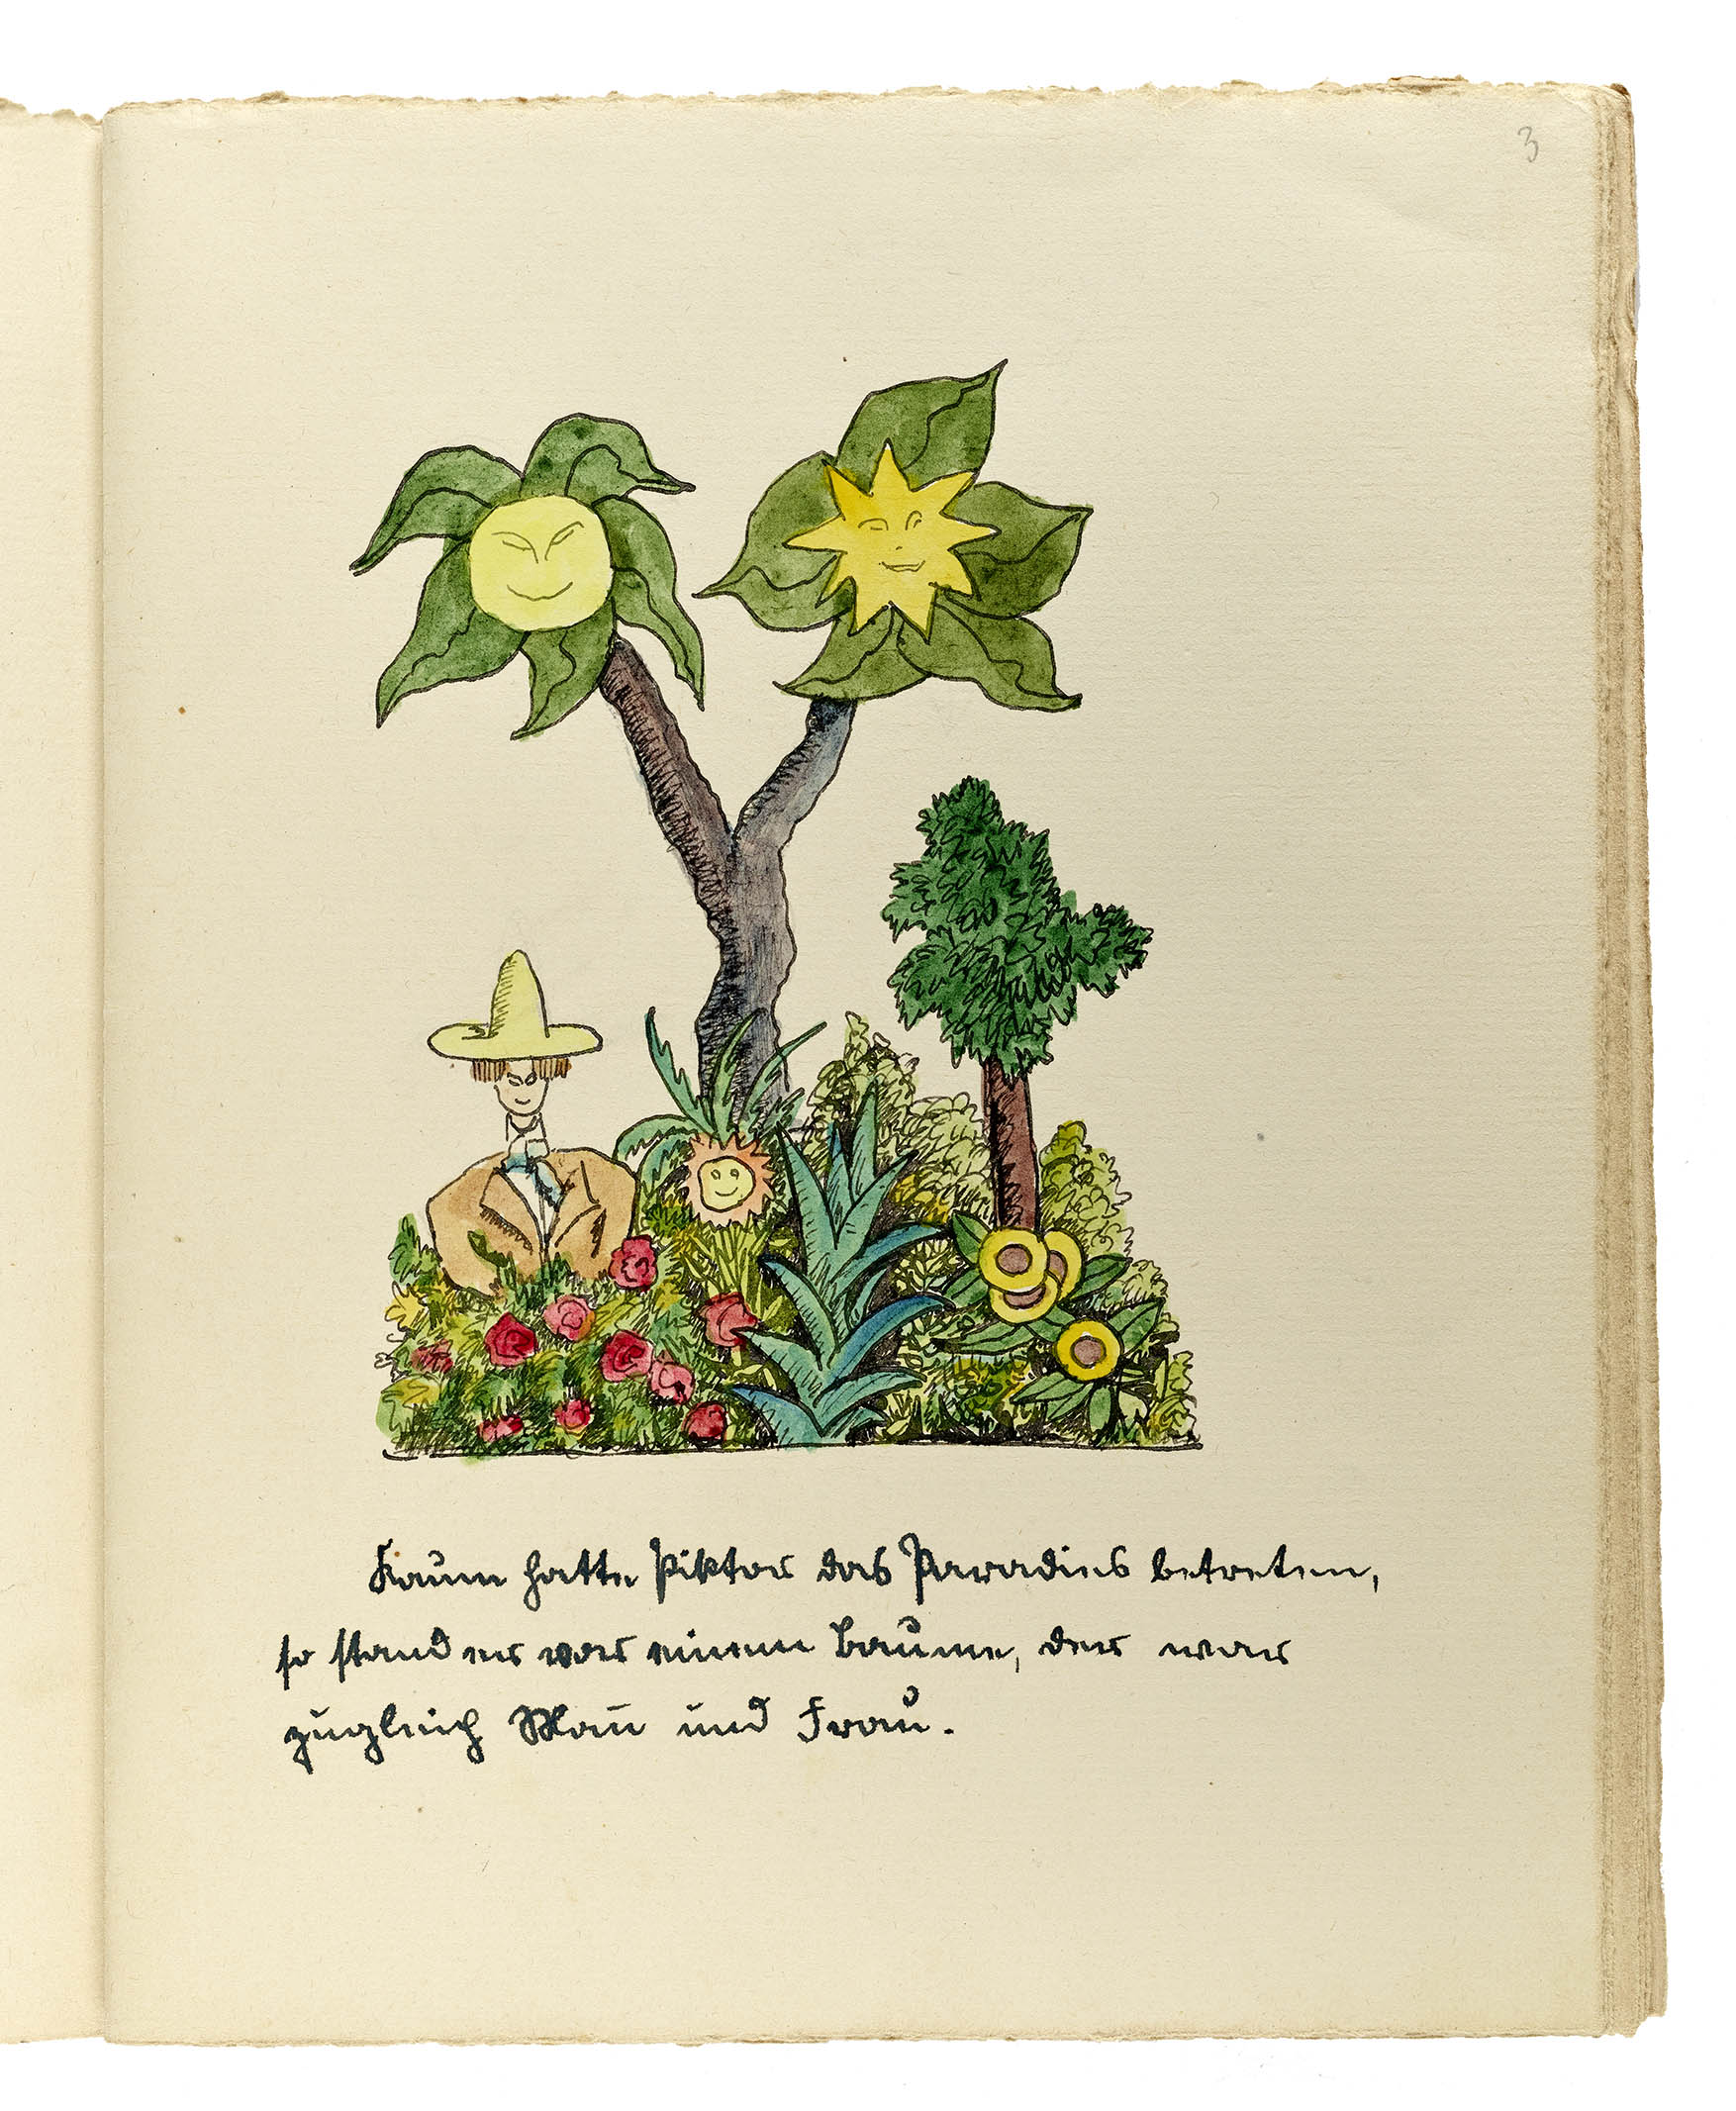 3
Kaum hatte Piktor das Paradies betreten,
so stand er vor einem Baume, der war
zugleich Mann und Frau.